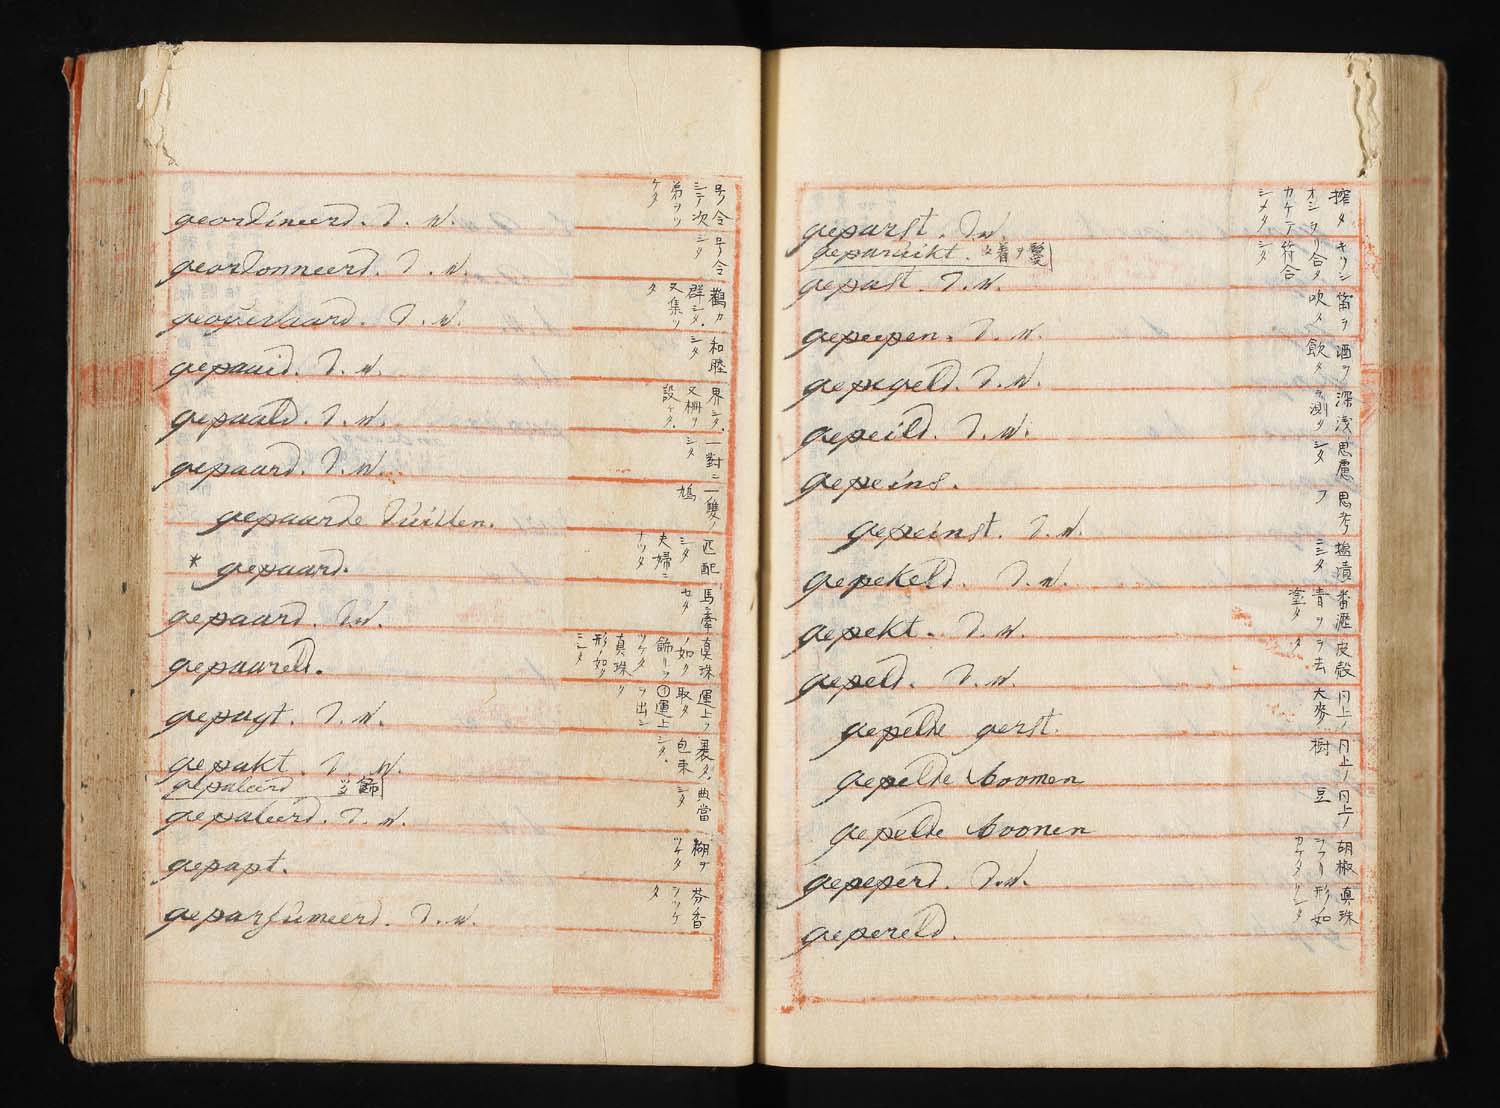 geordineerd. d. w. 号令シテ次第ヲツケタ
geordonneerd. d. w. 号令シタ
geoijevaard. d. w. 鸛カ群シタ. 又集ツタ
gepaaid. d. w. 和睦シタ
gepaald. d. w. 界シタ. 又柵ヲ設ケタ.
gepaard. d. w. 一對ニシタ
gepaarde duiven. 一雙ノ鳩
* gepaard. 匹配シタ 夫婦ニナツタ
gepaard. d. w. 馬ニ牽セタ
gepaareld. 真珠ノ如ク飾リヲツケタ 真珠ノ形ノ如クニシタ
gepagt. d. w. 運上ヲ取タ 運上ヲ出シ
gepakt. d. w. 裹タ. 包束シタ.
gepaleerd 飾ツタ
gepaleerd. d. w. 典當シタ
gepapt. 糊ヲツケタ
geparfumeerd. d. w. 芬香ヲツケタ
geparst. d. w. 搾タ
geparuikt. 髪ヲ着タ
gepast. d. w.
gepeepen. d. w. 笛ヲ吹タ
gepegeld. d. w. 酒ヲ飲タ
gepeild. d. w. 深浅ヲ測タ
gepeins. 思慮
gepeinst. d. w. 思考シタ
gepekeld. d. w. 塩漬ニシタ
gepekt. d. w. 番瀝青ヲ塗タ
gepeld. d. w. 皮殻ヲ去タ
gepelde gerst. 同上ノ大麥
gepelde boomen 同上ノ樹
gepelde boonen 同上ノ豆
gepeperd. d. w. 胡椒ヲフリカケタ
gepereld. 真珠ノ形ノ如クシタ